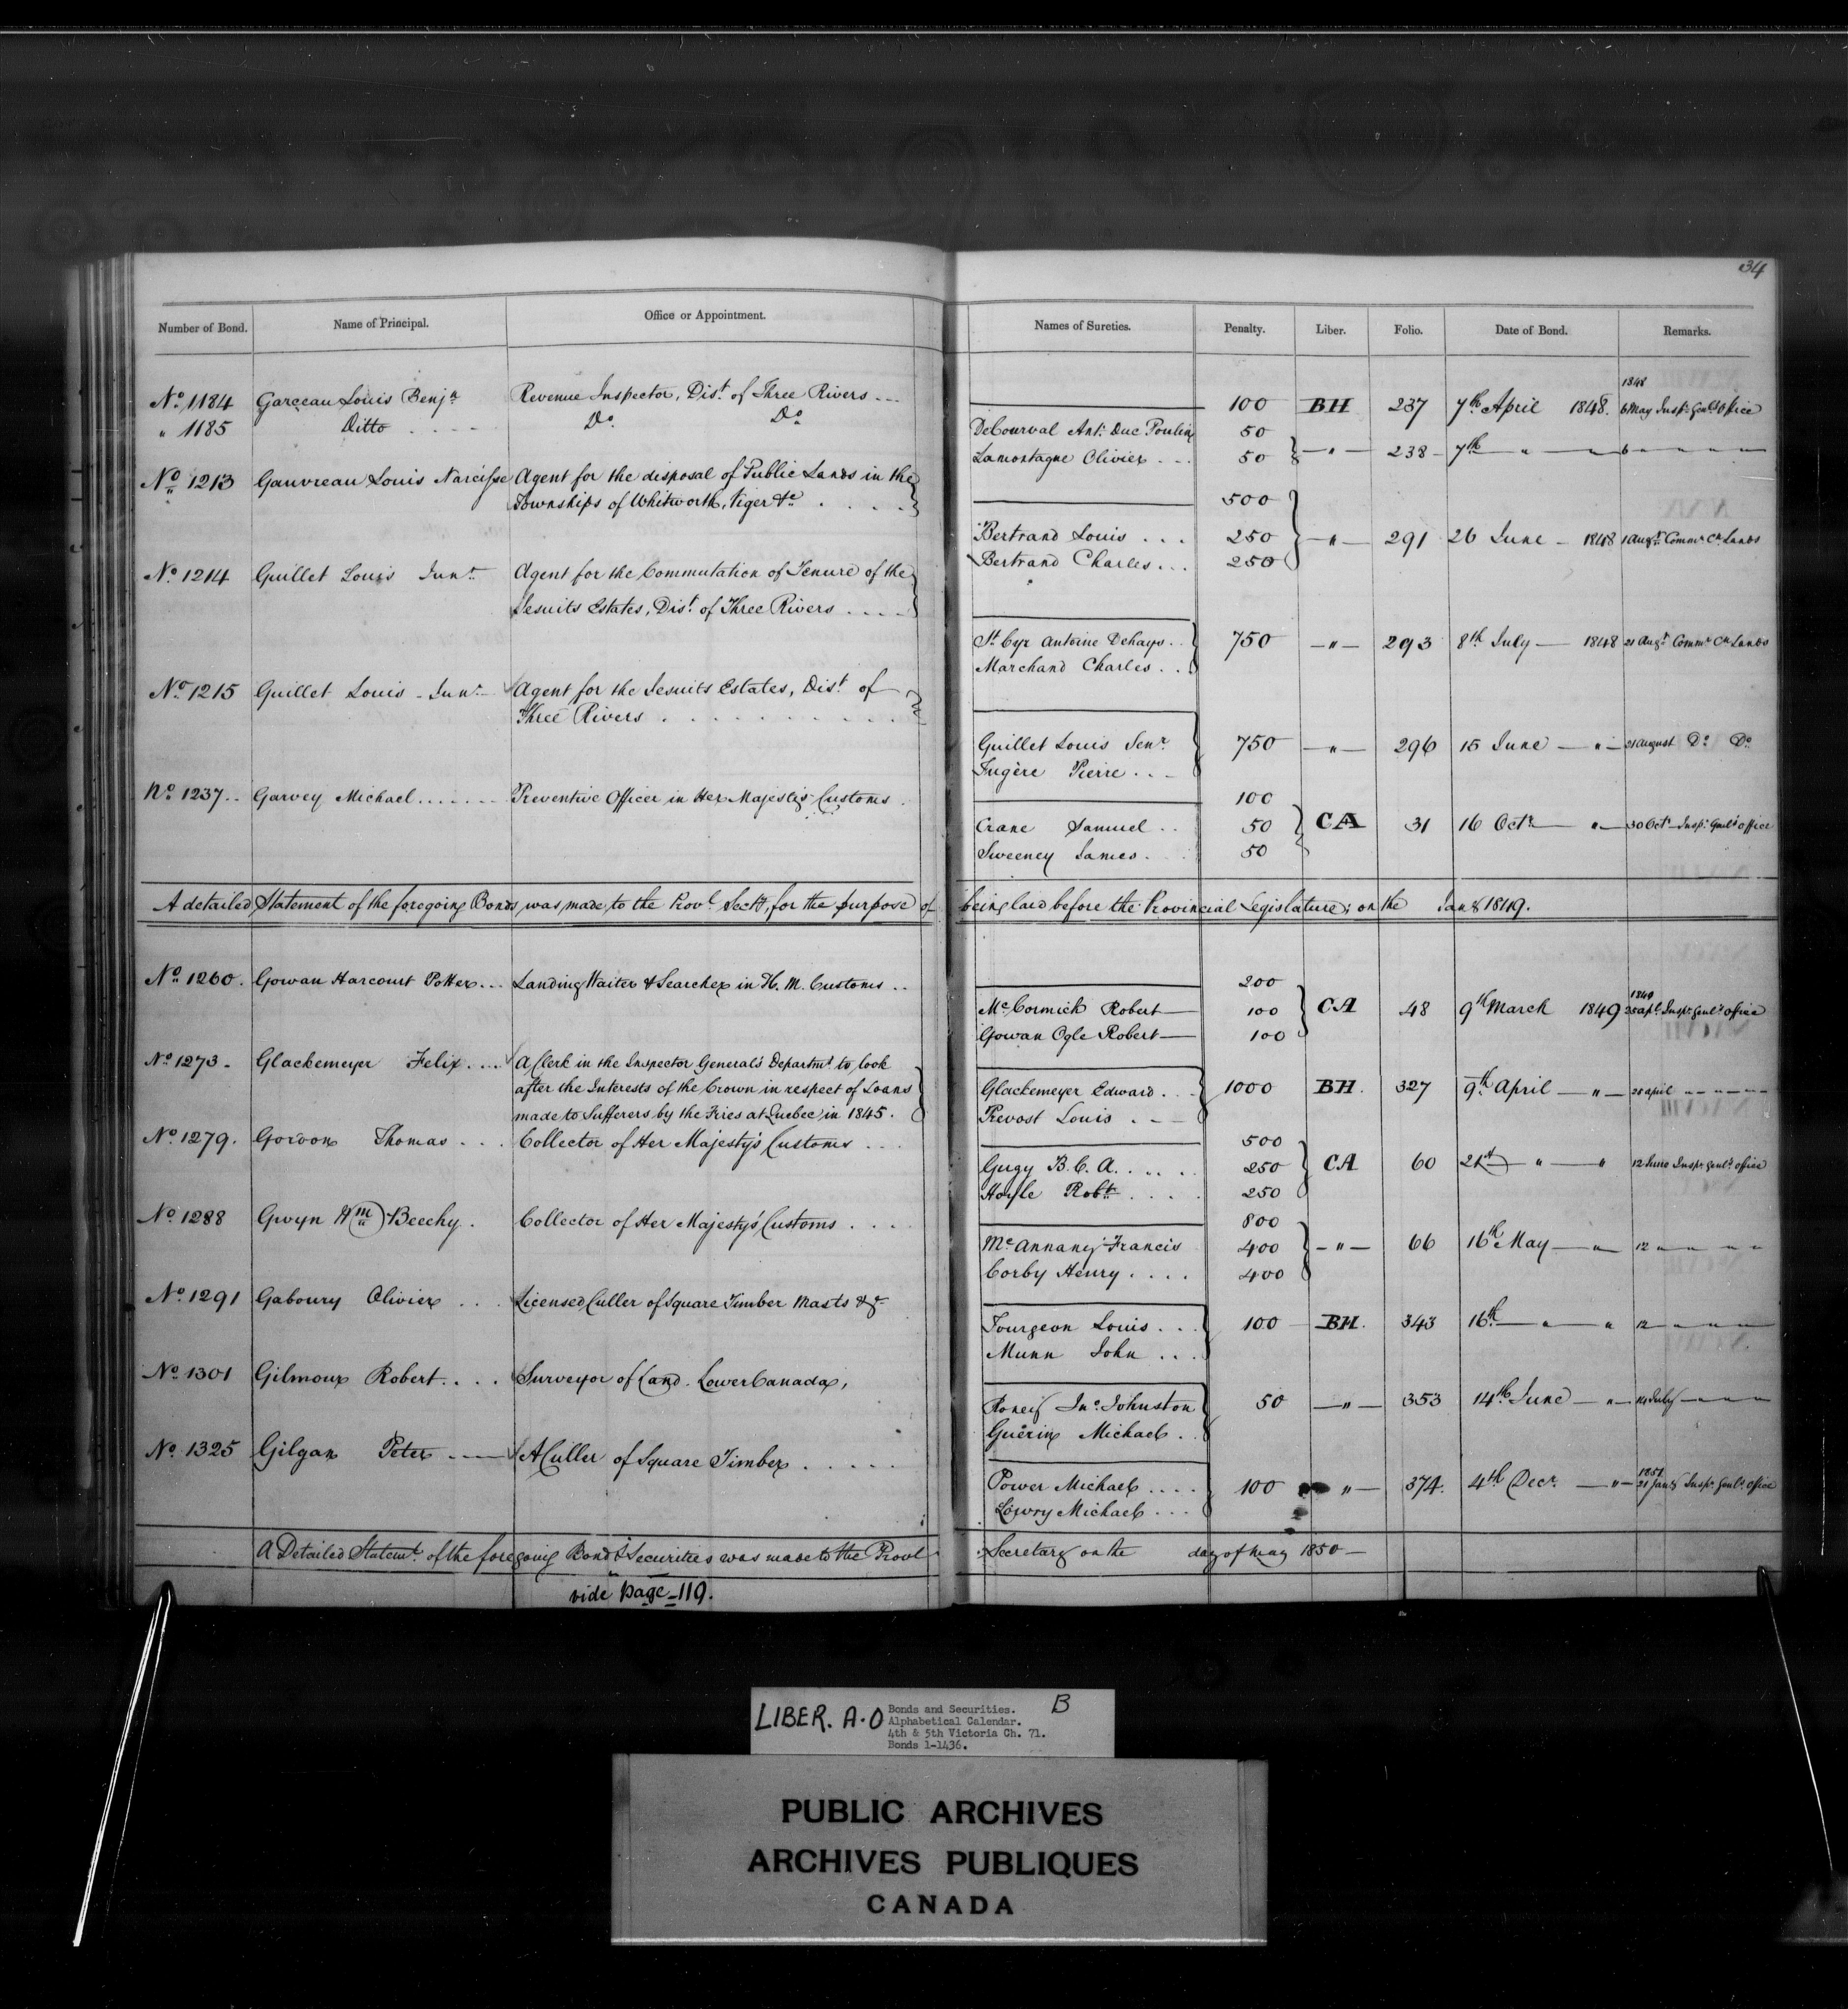 34
Number of Bond. Name of Principal. Office or Appointment. Names of Sureties. Penalty. Liber. Folio. Date of Bond. Remarks.
No. 1184 Garceau Louis Benjn Revenue Inspector, Dist. of Three Rivers --- 100 BH 237 7th April 1848. 1848 6 May Inspr. Genls Office
" 1185 Ditto Do. Do. DeCourval Ant. Duc Poulin 50
Lamontagne Olivier 50 " 238 7th " " 6 " " "
No. 1213 Gauvreau Louis Narcisse Agent for the disposal of Public Lands in the
Townships of Whitworth, Viger &c 500
Bertrand Louis 250 " 291 26 June 1848 1 Augt. Commr. Cn. Lands
Bertrand Charles 250
No. 1214 Guillet Louis Junr. Agent for the Commutation of Tenure of the
Jesuits Estates, Dist. of Three Rivers
St. Cyr Antoine Dehays 750 " 293 8th July 1848 21 Augt. Commr. Cn Lands
Marchand Charles
No. 1215 Guillet Louis Junr. Agent for the Jesuits Estates, Dist. of
Three Rivers
Guillet Louis Senr. 750 " 296 15 June " 21 August Do. Do.
Fugère Pierre
No. 1237 Garvey Michael Preventive Officer in Her Majesty's Customs 100
Crane Samuel 50 CA 31 16 Octr. " 30 Octr. Inspr. Genls Office
Sweeney James 50
A detailed Statement of the foregoing Bonds was made to the Provl. Secty, for the purpose of being laid before the Provincial Legislature; on the Jany 1849.
No. 1260. Gowan Harcourt Potter Landing Waiter & Searcher in H. M. Customs 200
McCormick Robert 100 CA 48 9th March 1849 1849 25 Apl. Inspr. Genl's office
Gowan Ogle Robert 100
No. 1273 Glackemeyer Felix A Clerk in the Inspector General's Departmt. to look
after the Interests of the Crown in respect of Loans
made to Sufferers by the Fires at Quebec in 1845.
Glackemeyer Edward 1000 BH 327 9th April " 25 april " " "
Prevost Louis
No. 1279. Gordon Thomas Collector of Her Majesty's Customs 500
Gugy B. C. A. 250 CA 60 21st " " 12 June Inspr. Genl's office
Hoyle Robt. 250
No. 1288 Gwyn Wm Beechy. Collector of Her Majesty's Customs 800
McAnnany Francis 400 " 66 16th May " 12 " " "
Corby Henry 400
No. 1291 Gaboury Olivier Licensed Culler of Square Timber Masts &c
Fourgeon Louis 100 BH 343 16th " " 12 " " "
Munn John
No. 1301 Gilmour Robert Surveyor of Land Lower Canada,
Roney Jno. Johnston 50 " 353 14th June " 14 July " " "
Guerin Michael
No. 1325 Gilgan Peter A Culler of Square Timber
Power Michael 100 " 374. 4th Decr. " 1851 21 Jany Inspr. Genl's office
Lowry Michael
A Detailed Statemt. of the foregoing Bond & Securities was made to the Provl Secretary on the day of May 1850
vide page 119.
LIBER. A-O B
Bonds and Securities.
Alphabetical Calendar.
4th & 5th Victoria Ch. 71.
Bonds 1-1436.
PUBLIC ARCHIVES
ARCHIVES PUBLIQUES
CANADA